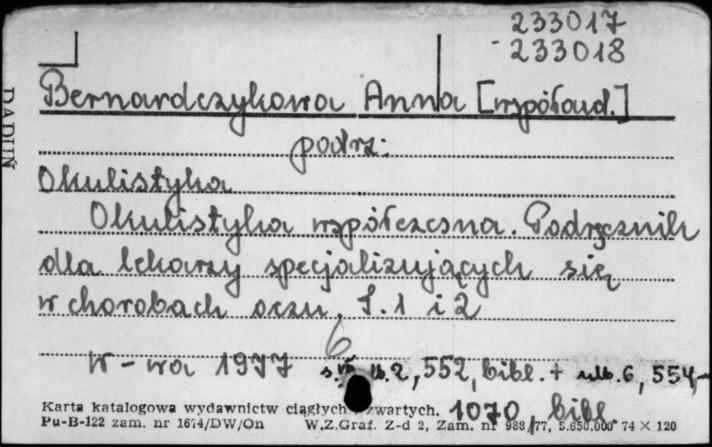 233017
- 233018
Bernardczykowa Anna [współaut.]
patrz:
Okulistyka
Okulistyka współczesna. Podręcznik
dla lekarzy specjalizujących się
w chorobach oczu. T. 1 i 2
6
W-wa 1977 s. VII, lb. 2, 552, bibl. + nlb. 6, 554,-
1070, bibl.
Karta katalogowa wydawnictw ciągłych zwartych.
Pu-B-122 zam. nr 1674/DW/On W.Z.Graf. Z-d 2, Zam. nr 988/77, 5.650.000 74 × 120
DADUŃ